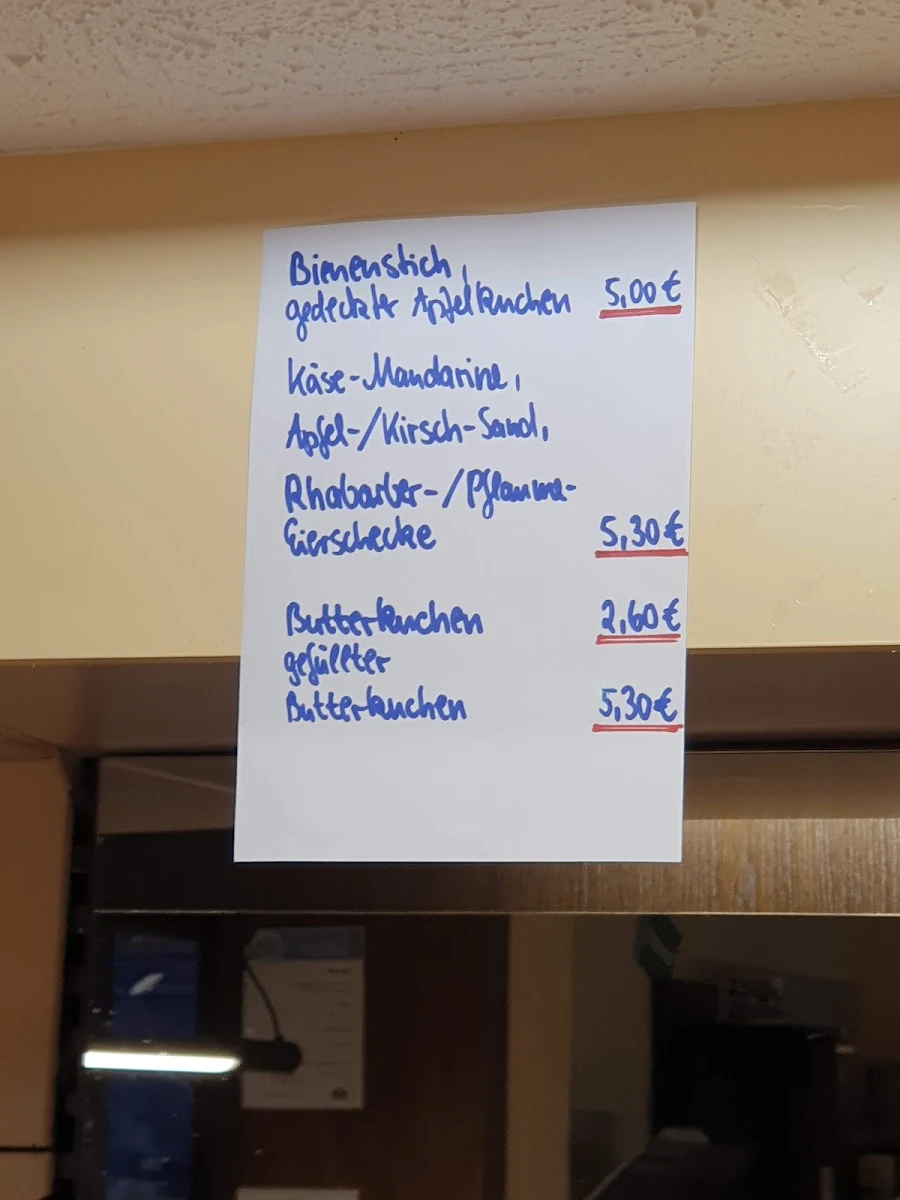 Bienenstich,
gedeckter Apfelkuchen 5,00 €
Käse-Mandarine,
Apfel-/Kirsch-Sand,
Rhabarber-/Pflaume-
Eierschecke 5,30 €
Butterkuchen 2,60 €
gefüllter
Butterkuchen 5,30 €